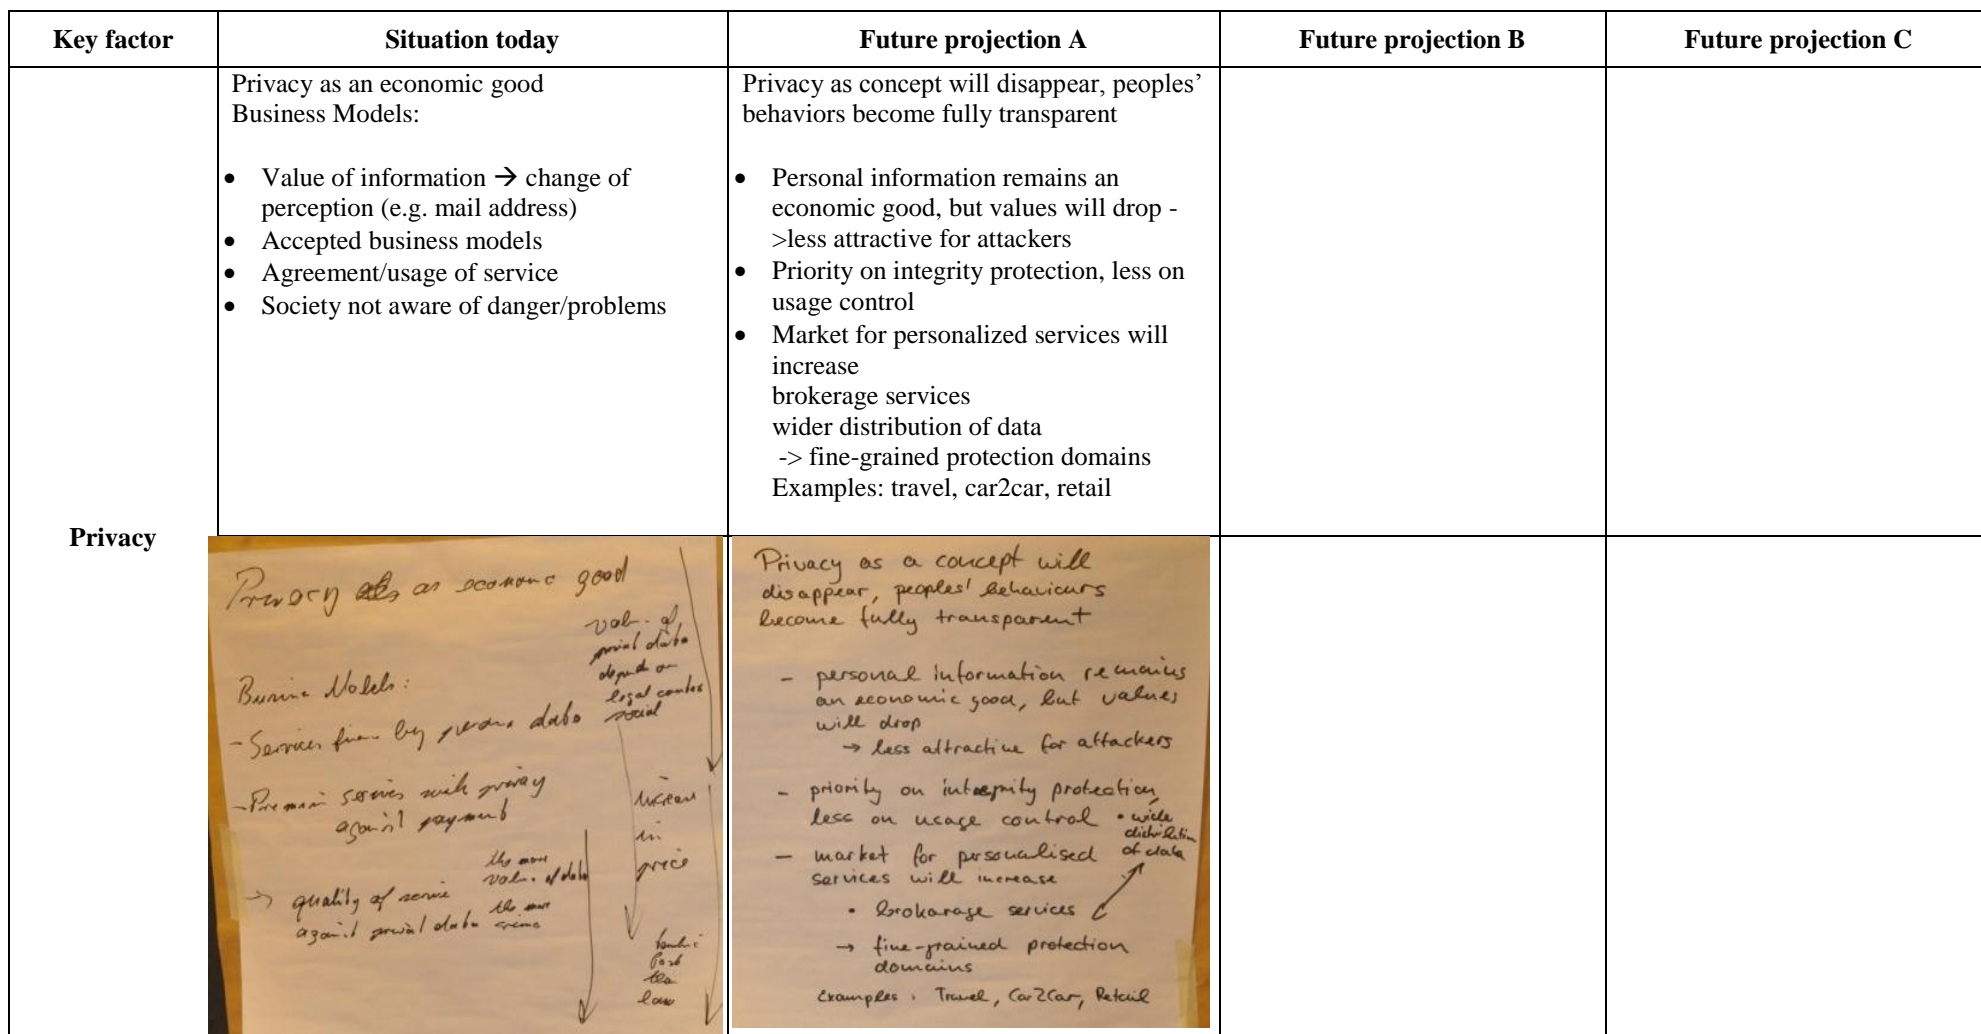 Key factor
Situation today
Future projection A
Future projection B
Future projection C
Privacy
Privacy as an economic good
Business Models:
• Value of information → change of
perception (e.g. mail address)
• Accepted business models
• Agreement/usage of service
• Society not aware of danger/problems
Privacy as concept will disappear, peoples’
behaviors become fully transparent
• Personal information remains an
economic good, but values will drop -
>less attractive for attackers
• Priority on integrity protection, less on
usage control
• Market for personalized services will
increase
brokerage services
wider distribution of data
-> fine-grained protection domains
Examples: travel, car2car, retail
Privacy as economic good
of
data
depend on
legal
social
Models:
- Services by data
- services with privacy
against payment
increase
in
price
the more
of data
→ quality of service
against data the more
law
Privacy as a concept will
disappear, peoples' behaviours
become fully transparent
- personal information remains
an economic good, but values
will drop
→ less attractive for attackers
- priority on integrity protection,
less on usage control
• wide
distribution
of data
- market for personalised
services will increase
• brokarage services
→ fine-grained protection
domains
Examples: Travel, Car2Car, Retail